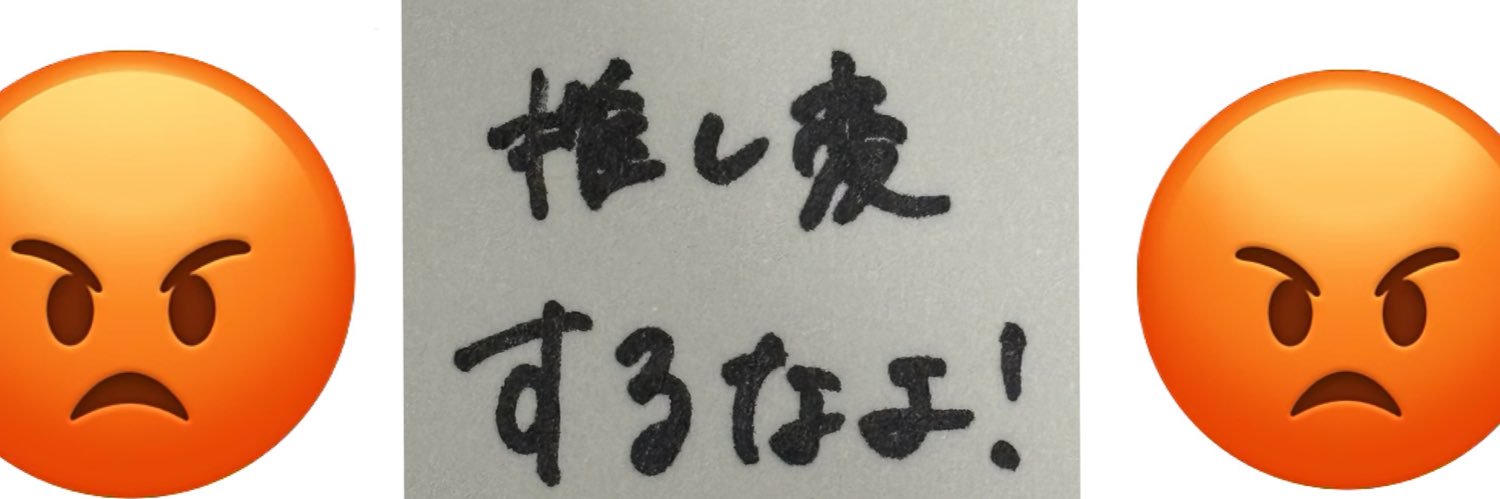 推し変
するなよ!